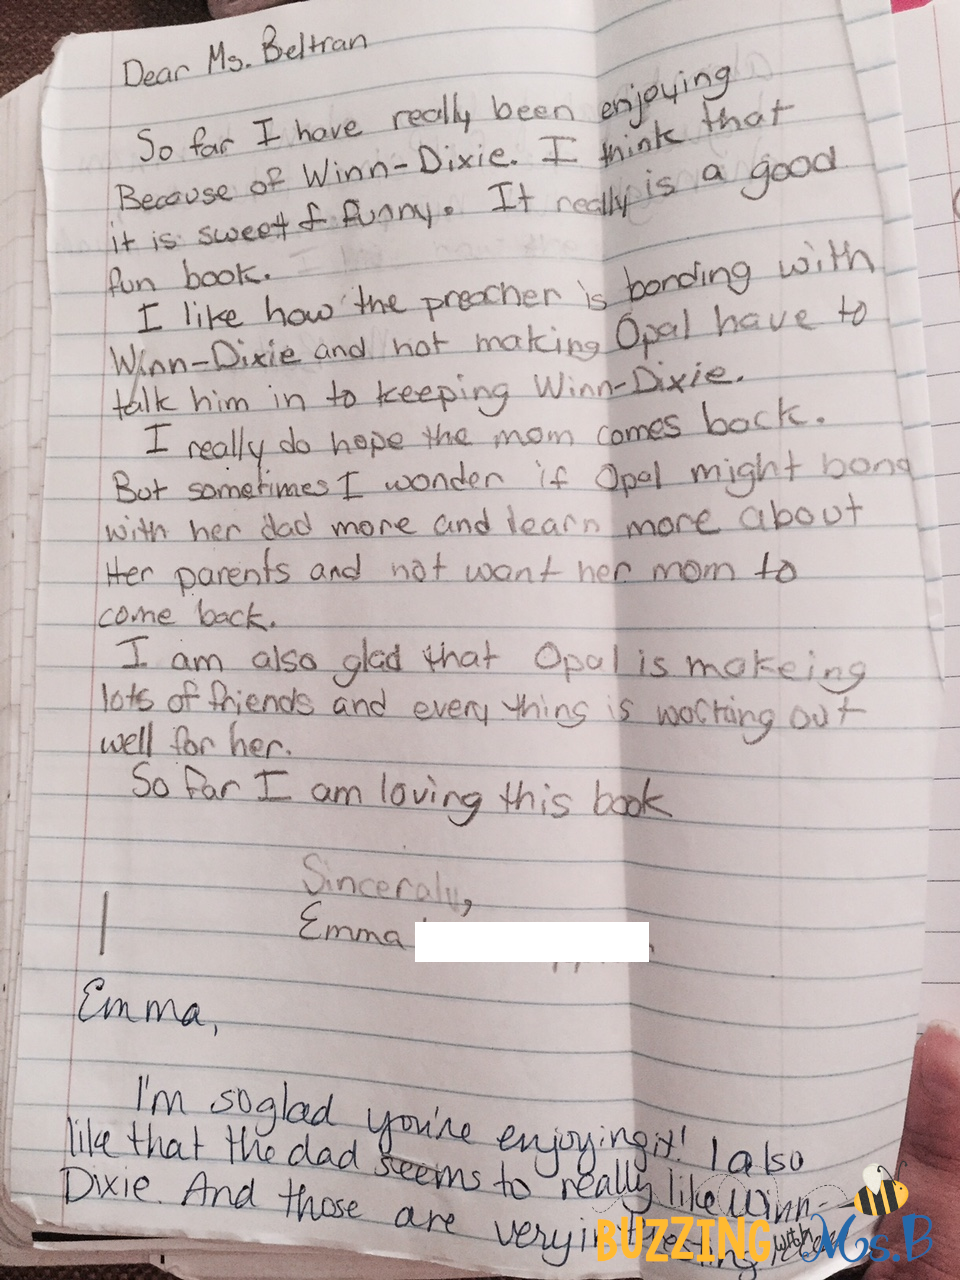 Dear Ms. Beltran
So far I have really been enjoying
Because of Winn-Dixie. I think that
it is sweet & funny. It really is a good
fun book.
I like how the preacher is bonding with
Winn-Dixie and not making Opal have to
talk him in to keeping Winn-Dixie.
I really do hope the mom comes back.
But sometimes I wonder if Opal might bond
with her dad more and learn more about
Her parents and not want her mom to
come back.
I am also glad that Opal is makeing
lots of friends and every thing is working out
well for her.
So far I am loving this book
Sinceraly,
Emma
Emma,
I'm so glad you're enjoying it! I also
like that the dad seems to really like Winn-
Dixie. And those are very
BUZZING with Ms.B